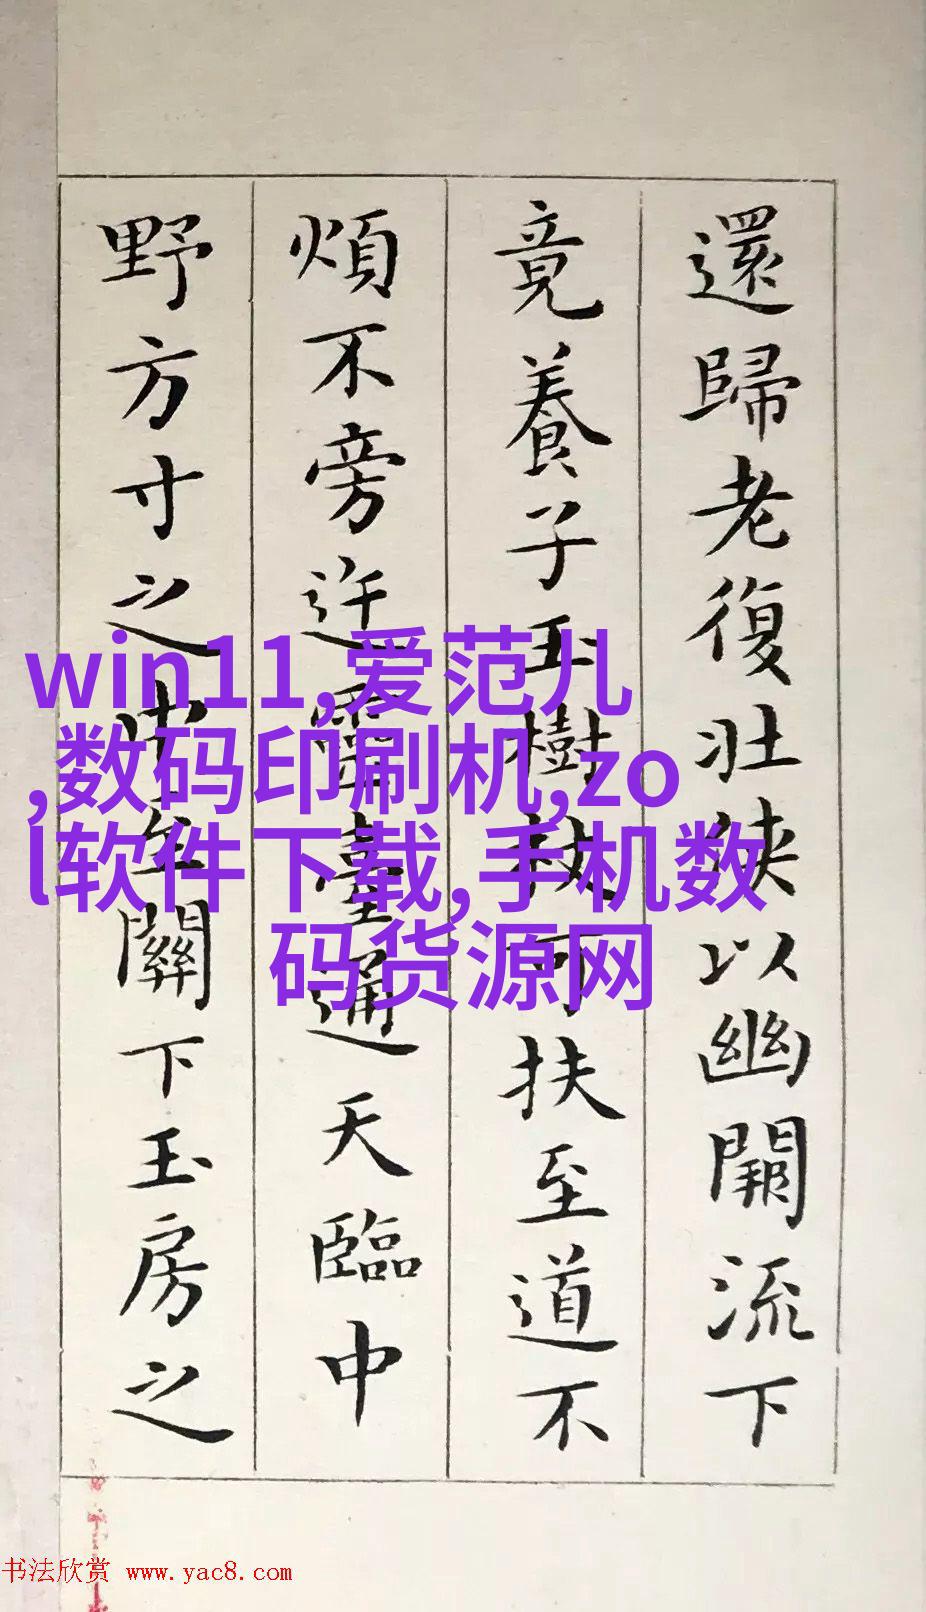 還歸老復壯俠以幽闕流下
竟養子玉樹杖可扶至道不
煩不旁迕靈臺通天臨中
野方寸之中至關下玉房之
win11,爱范儿
,数码印刷机,zo
l软件下载,手机数
码货源网
书法欣赏 www.yac8.com